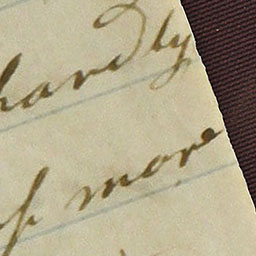 hardly
more